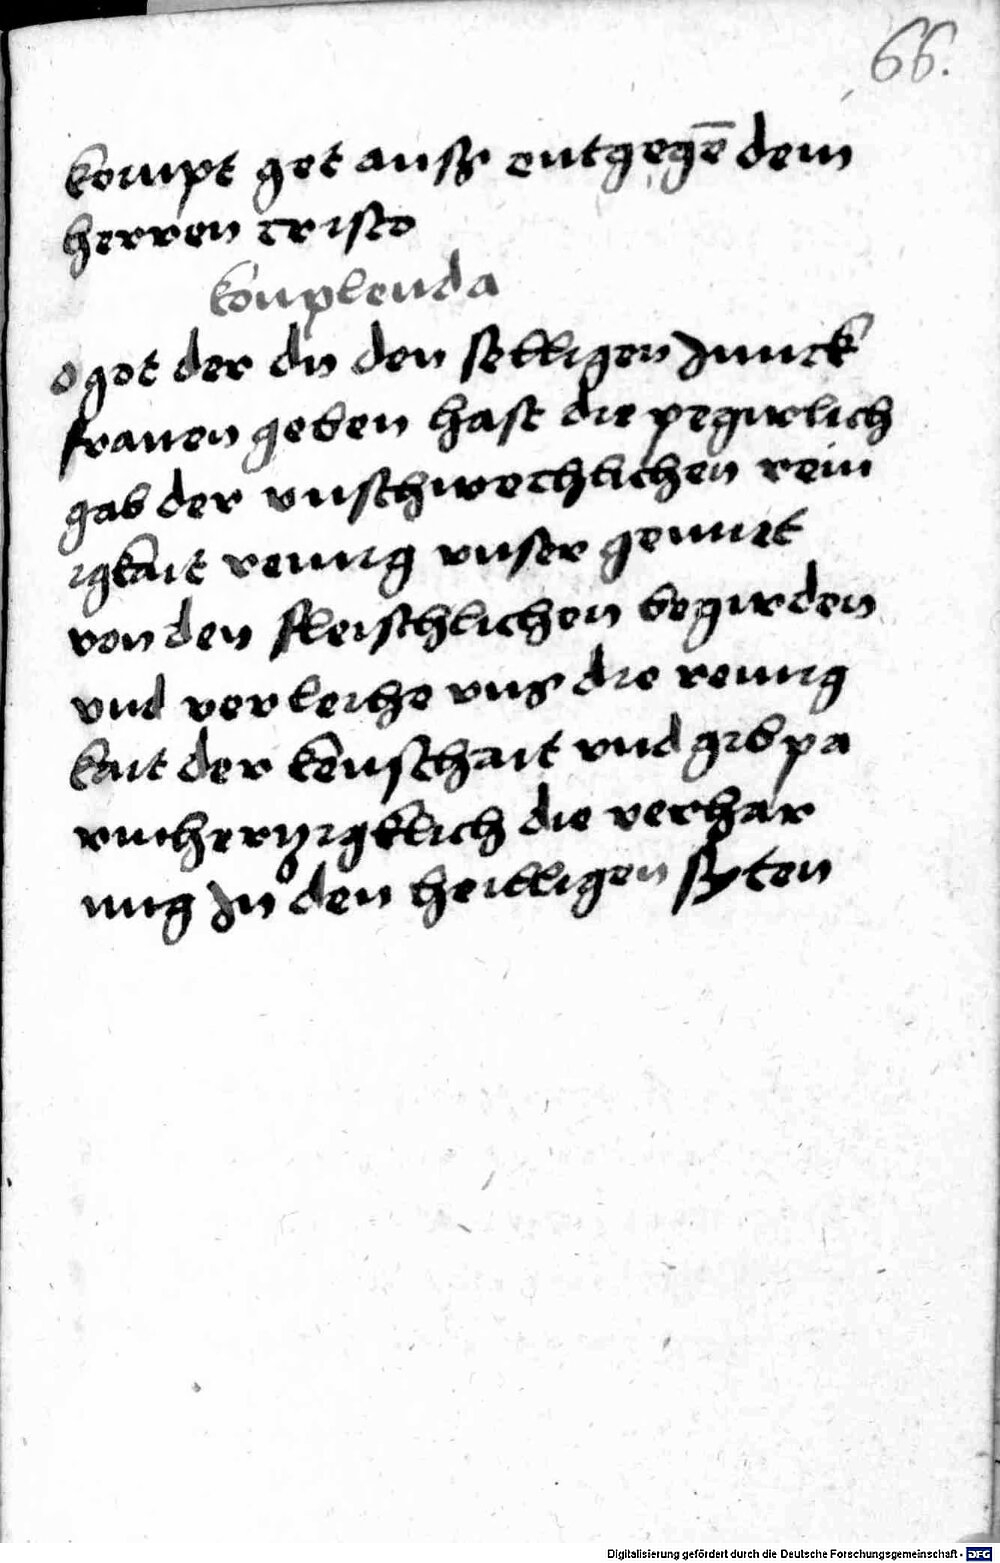 66.
kompt get auß entgegē dem
herren cristo
konplenda
o got der du den selligen Junck
frauen geben hast die pegirlich
gab der vnschwechlichen rein
igkait reinig vnser gemiet
von den fleischlichen begirden
vnd verleiche vns die reinig
kait der keuschait vnd gib pa
rmhertzigklich die verhar
ung In den heilligen syten
Digitalisierung gefördert durch die Deutsche Forschungsgemeinschaft - DFG